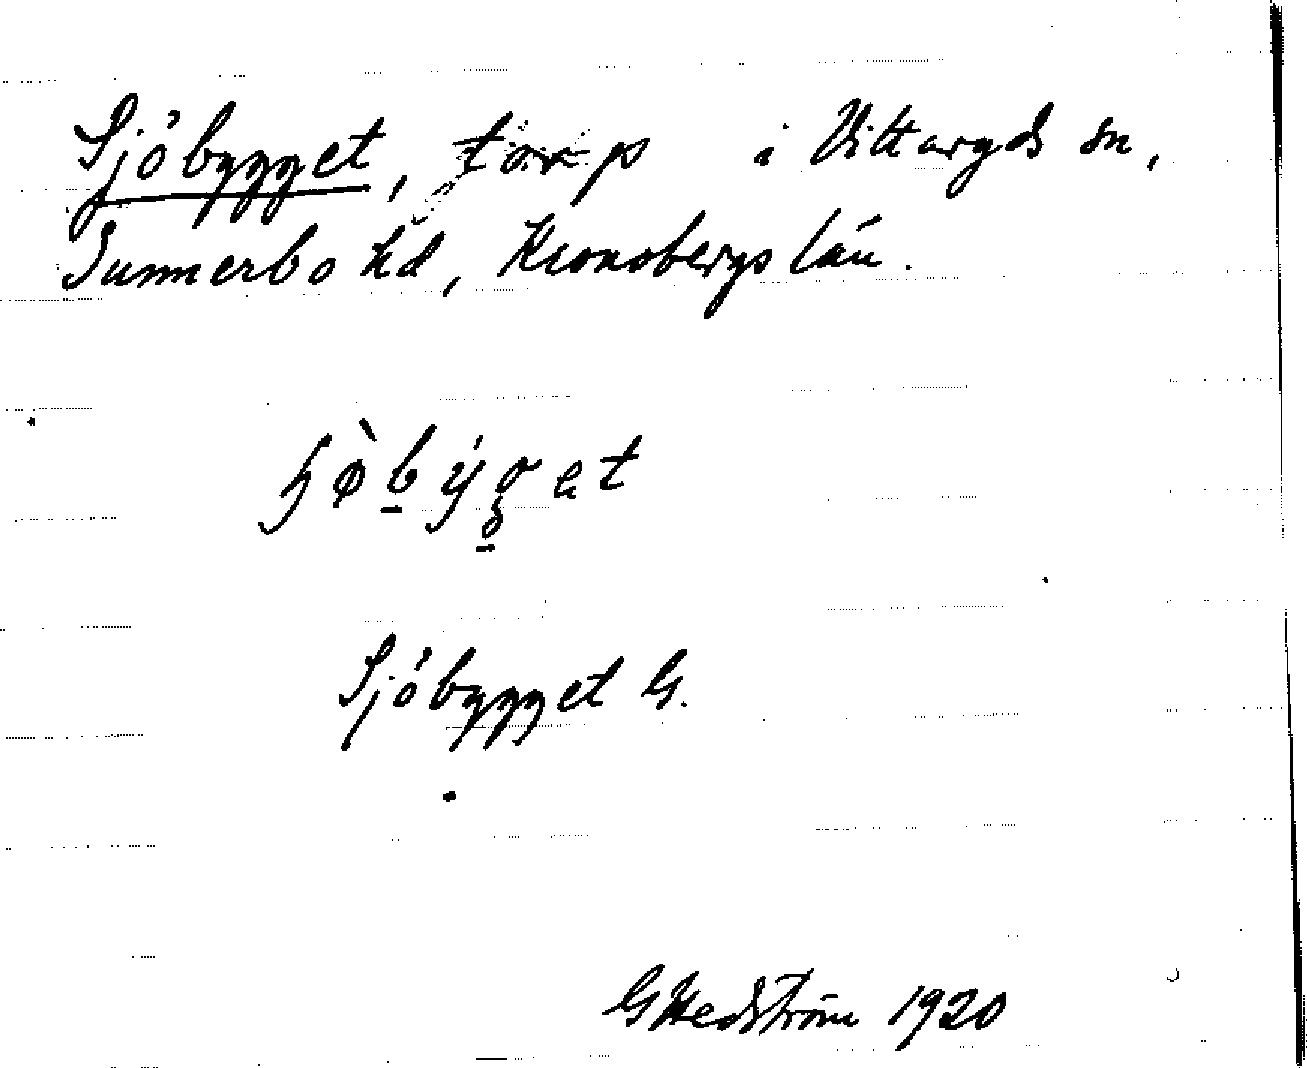 Sjöbygget, torp i Vittaryds sn,
Sunnerbo hd, Kronobergs län.
Sjöbygget G.
G Hedström 1920